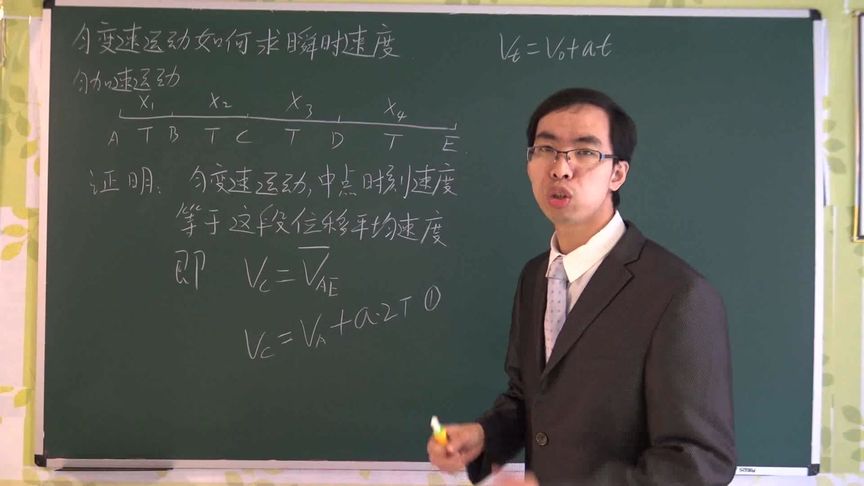 匀变速运动如何求瞬时速度
Vt=V0+at
匀加速运动
X1 X2 X3 X4
A T B T C T D T E
证明: 匀变速运动,中点时刻速度
等于这段位移平均速度
即 VC=V̅AE
VC=VA+a·2T ①